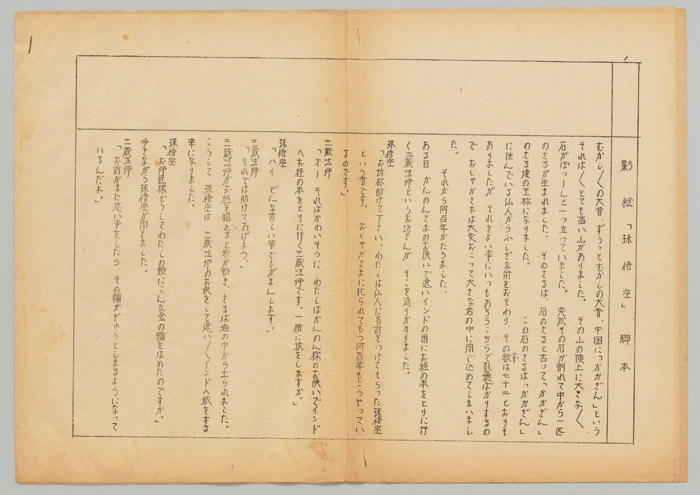 影絵「孫悟空」 脚本
むかし〱の大昔、ずうっとむかしの大昔、中国に「かかざん」という
それは〱とても高い山がありました。その山の頂上に大きな〱
石がぽつーんと一つ立っていました。 突然その石が割れて中から一匹
のさるが生まれました。 そのさるは、石のさると言って「かかざん」
のさる達の王様になりました。 この石のさるは「かかざん」
に住んでいる仙人からふしぎな術をおそわり、その数は七十二とおりも
ありましたが、それをよい事にいつもあちらこちらで乱暴ばかりするの
で おしゃかさまは大変おこって大きな岩の中に閉じ込めてしまいまし
た。
それから何百年かたちました。
ある日 かんのんさまのお使いで遠いインドの国にお経の本をとりに行
く三蔵法師というお坊さんが そこを通りかかりました。
孫悟空
「お坊様助けて下さい。わたしは仙人に名前をつけてもらった孫悟空
という者です。 おしゃかさまに叱られてもう何百年もこうやってい
るのです。」
三蔵法師
「オー それはかわいそうに、わたしはかんのん様のお使いでインド
へお経の本をとりに行く三蔵法師です。一緒に旅をしますか。」
孫悟空
「ハイ どんな苦しい事でもがまんします。」
三蔵法師
「それでは助けてあげよう。」
三蔵法師がお経を唱えると岩が動き、さるは岩の中から出られました。
こうして 孫悟空は 三蔵法師のお供をして遠い〱インドへ旅をする
事になりました。
孫悟空
「お師匠様どうしてわたしの頭にこんな金の輪をはめたのですか。」
歩きながら孫悟空が聞きました。
三蔵法師
「お前がまた悪い事をしたら その輪がぎゅうとしまるようになって
いるんだよ。」